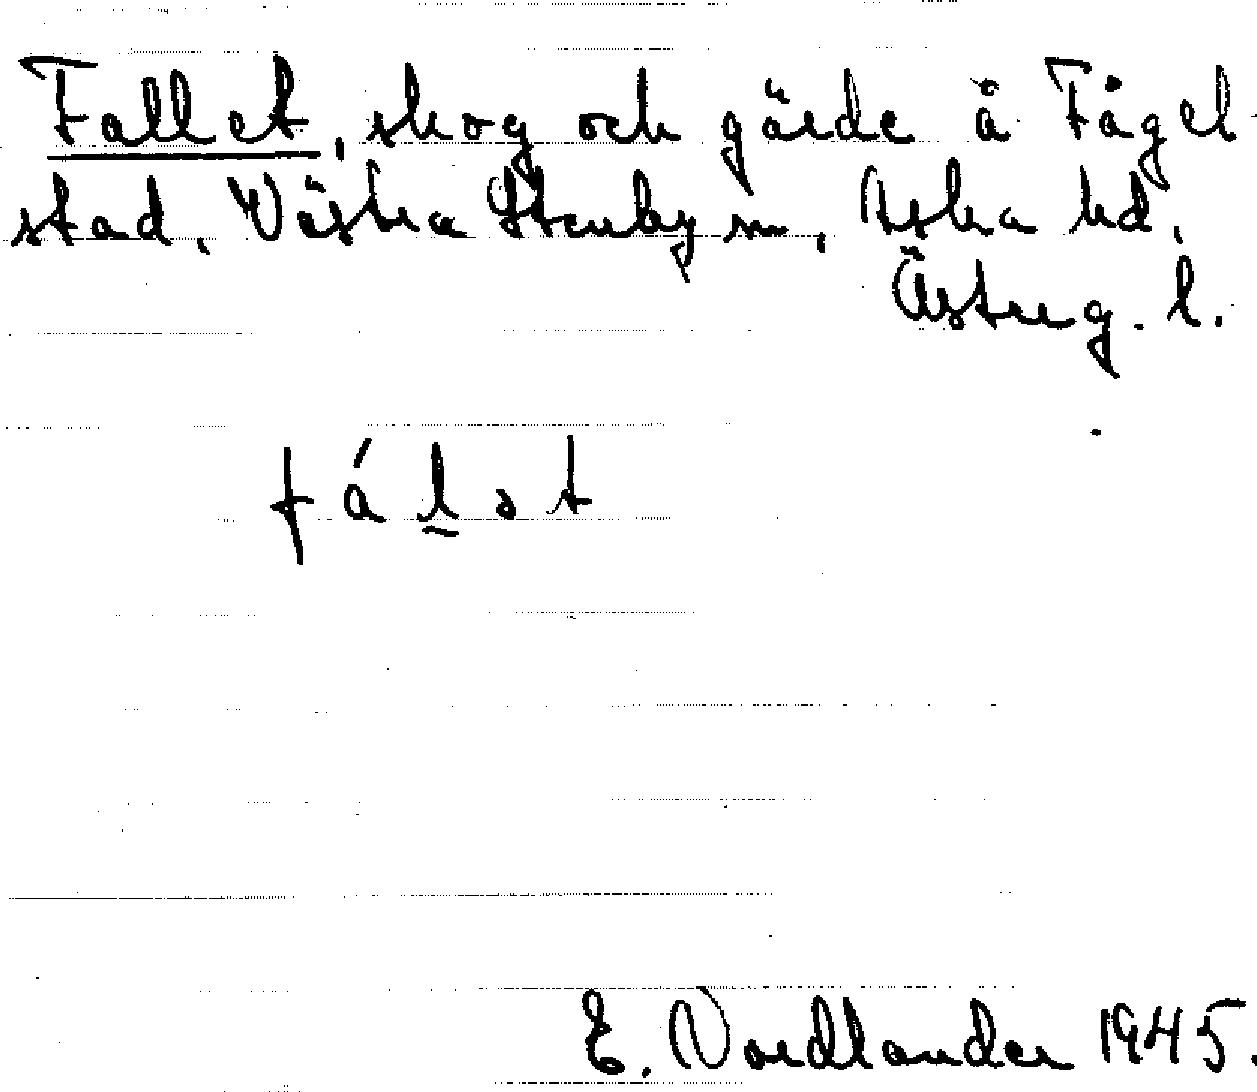 Fallet, skog och gärde å Fågel
stad, Västra Stenby sn, Aska hd,
Österg. l.
fá l̲ ə t
E. Nordlander 1945.